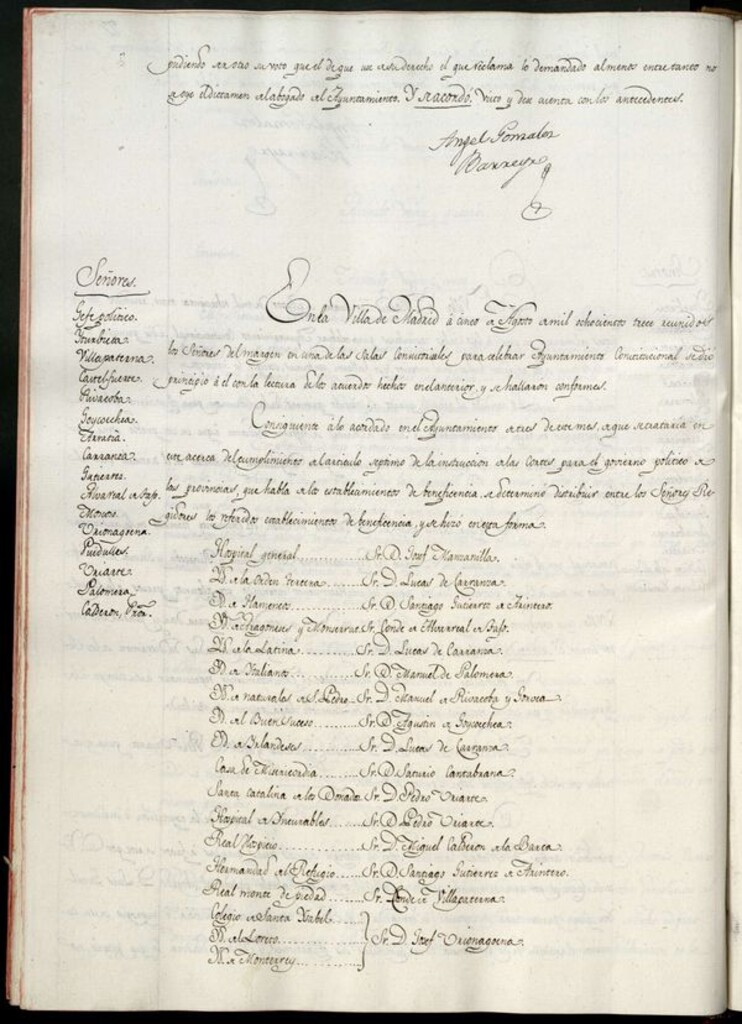 pudiendo dar otro su voto que el de que use de su derecho el que reclama lo demandado al menos entre tanto no
se oye el dictamen del abogado del Ayuntamiento. Y se acordó: Visto y dese cuenta con los antecedentes.
Angel Gonzalez
Barreyro
Señores.
Gefe politico.
Yturbieta.
Villapaterna.
Castel-fuerte.
Rivacoba.
Goycoechea.
Arratia.
Carranza.
Gutierrez.
Alvarreal de Tajo.
Urionagoena.
Uriarte.
Palomera.
Calderon, Pror.
En la Villa de Madrid á cinco de Agosto de mil ochocientos trece reunidos
los Señores del margen en una de las Salas Consistoriales para celebrar Ayuntamiento Constitucional se dió
principio á él con la lectura de los acuerdos hechos en el anterior, y se hallaron conformes.
Consiguiente á lo acordado en el Ayuntamiento de tres de este mes, de que se trataria en
este acerca del cumplimiento del articulo septimo de la instruccion de las Cortes para el govierno politico de
las provincias, que habla de los establecimientos de beneficencia, se determinó distribuir entre los Señores Re-
gidores los referidos establecimientos de beneficencia, y se hizo en esta forma.
Hospital general........... Sr. D. Josef Manzanilla.
Yd. de la Orden tercera....... Sr. D. Lucas de Carranza.
Yd. de Flamencos............ Sr. D. Santiago Gutierrez de Arintero.
Yd. de Aragoneses y Monserrate Sr. Conde de Alvarreal de Tajo.
Yd. de la Latina............ Sr. D. Lucas de Carranza.
Yd. de Italianos............ Sr. D. Manuel de Palomera.
Yd. de naturales de S. Pedro.. Sr. D. Manuel de Rivacoba y Gorvea.
Yd. del Buen Suceso.......... Sr. D. Agustin de Goycoechea.
Yd. de Irlandeses........... Sr. D. Lucas de Carranza.
Casa de Misericordia........ Sr. D. Saturio Cantabrana.
Santa Catalina de los Donados Sr. D. Pedro Uriarte.
Hospital de Incurables...... Sr. D. Pedro Uriarte.
Real Hospicio............... Sr. D. Miguel Calderon de la Barca.
Hermandad del Refugio....... Sr. D. Santiago Gutierrez de Arintero.
Real monte de piedad........ Sr. Conde de Villapaterna.
Colegio de Santa Ysabel.....
Yd. de Loreto............... Sr. D. Josef Urionagoena.
Yd. de Monterrey............